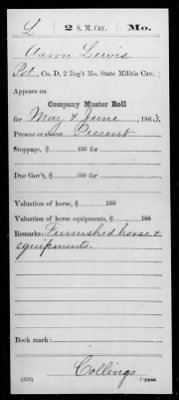 L 2 S. M. Cav. Mo.
Aaron Lewis
Pvt., Co. D, 2 Reg't Mo. State Militia Cav.
Appears on
Company Muster Roll
for May & June, 1863.
Present or absent Present
Stoppage, $ 100 for
Due Gov't, $ 100 for
Valuation of horse, $ 100
Valuation of horse equipments, $ 100
Remarks: Furnished horse &
equipments.
Book mark:
Collings
(358) Copyist.